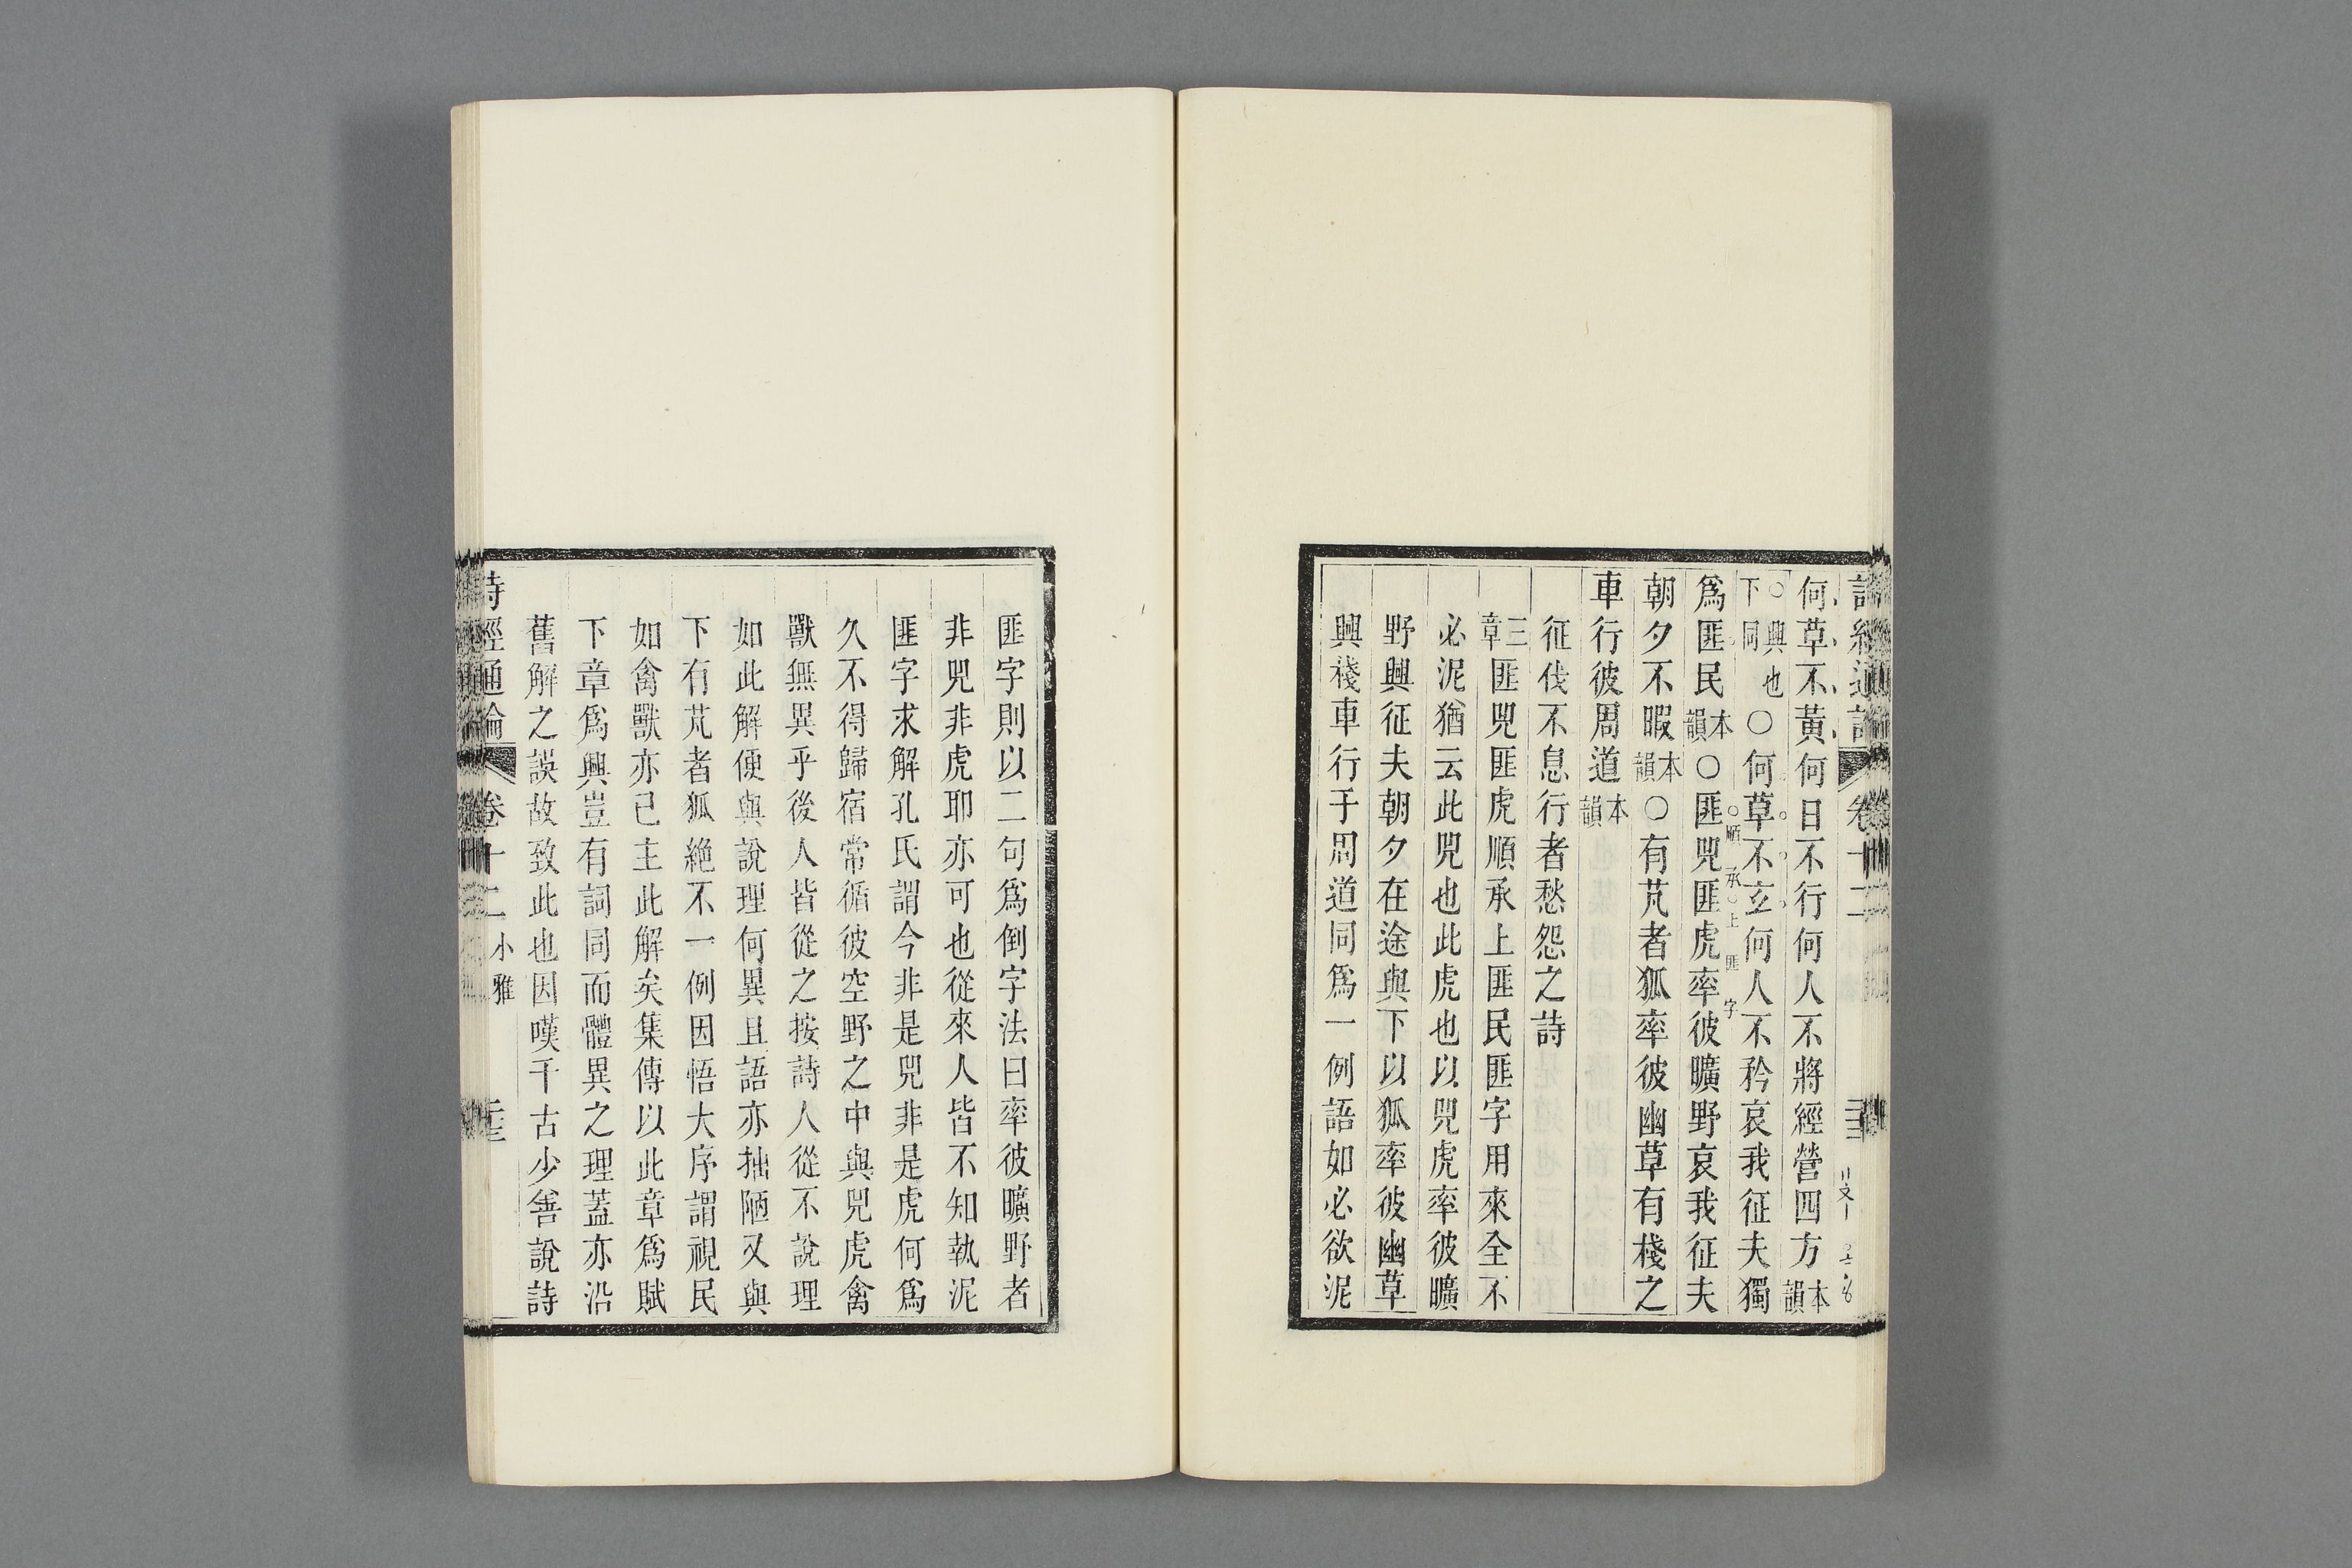 詩經通論 卷十二
何草不黃何日不行何人不將經營四方本韻
○興也下同○何草不玄何人不矜哀我征夫獨
爲匪民本韻○匪兕匪虎率彼曠野哀我征夫
○順承上匪字
朝夕不暇本韻○有芃者狐率彼幽草有棧之
車行彼周道本韻
征伐不息行者愁怨之詩
三章匪兕匪虎順承上匪民匪字用來全不
必泥猶云此兕也此虎也以兕虎率彼曠
野興征夫朝夕在途與下以狐率彼幽草
興棧車行于周道同爲一例語如必欲泥
匪字則以二句爲倒字法曰率彼曠野者
非兕非虎耶亦可也從來人皆不知執泥
匪字求解孔氏謂今非是兕非是虎何爲
久不得歸宿常循彼空野之中與兕虎禽
獸無異乎後人皆從之按詩人從不說理
如此解便與說理何異且語亦拙陋又與
下有芃者狐絶不一例因悟大序謂視民
如禽獸亦已主此解矣集傳以此章爲賦
下章爲興豈有詞同而體異之理蓋亦沿
舊解之誤故致此也因嘆千古少善說詩
詩經通論 卷十二 小雅